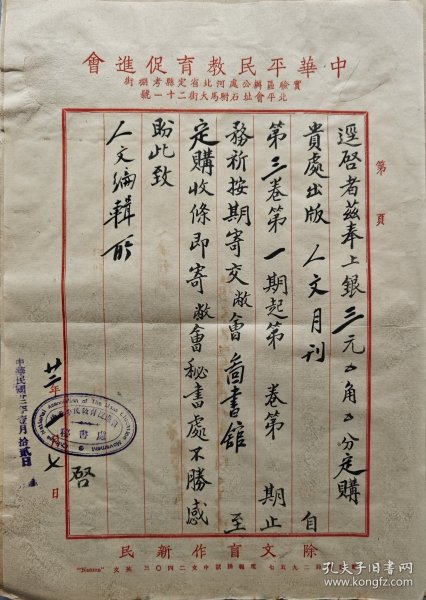 中華平民教育促進會
實驗區辦公處河北省定縣考棚街
北平會址石駙馬大街二十一號
第 頁
逕啓者茲奉上銀三元 角 分定購
貴處出版 人文月刊 自
第三卷第一期起第 卷第 期止
務祈按期寄交敝會 圖書館 至
定購收條即寄敝會秘書處不勝感
盼此致
人文編輯所
廿三年 月七日
啓
秘書處
中華民國 年 月拾貳日
除文盲作新民
孔夫子旧书网
kongfz.com